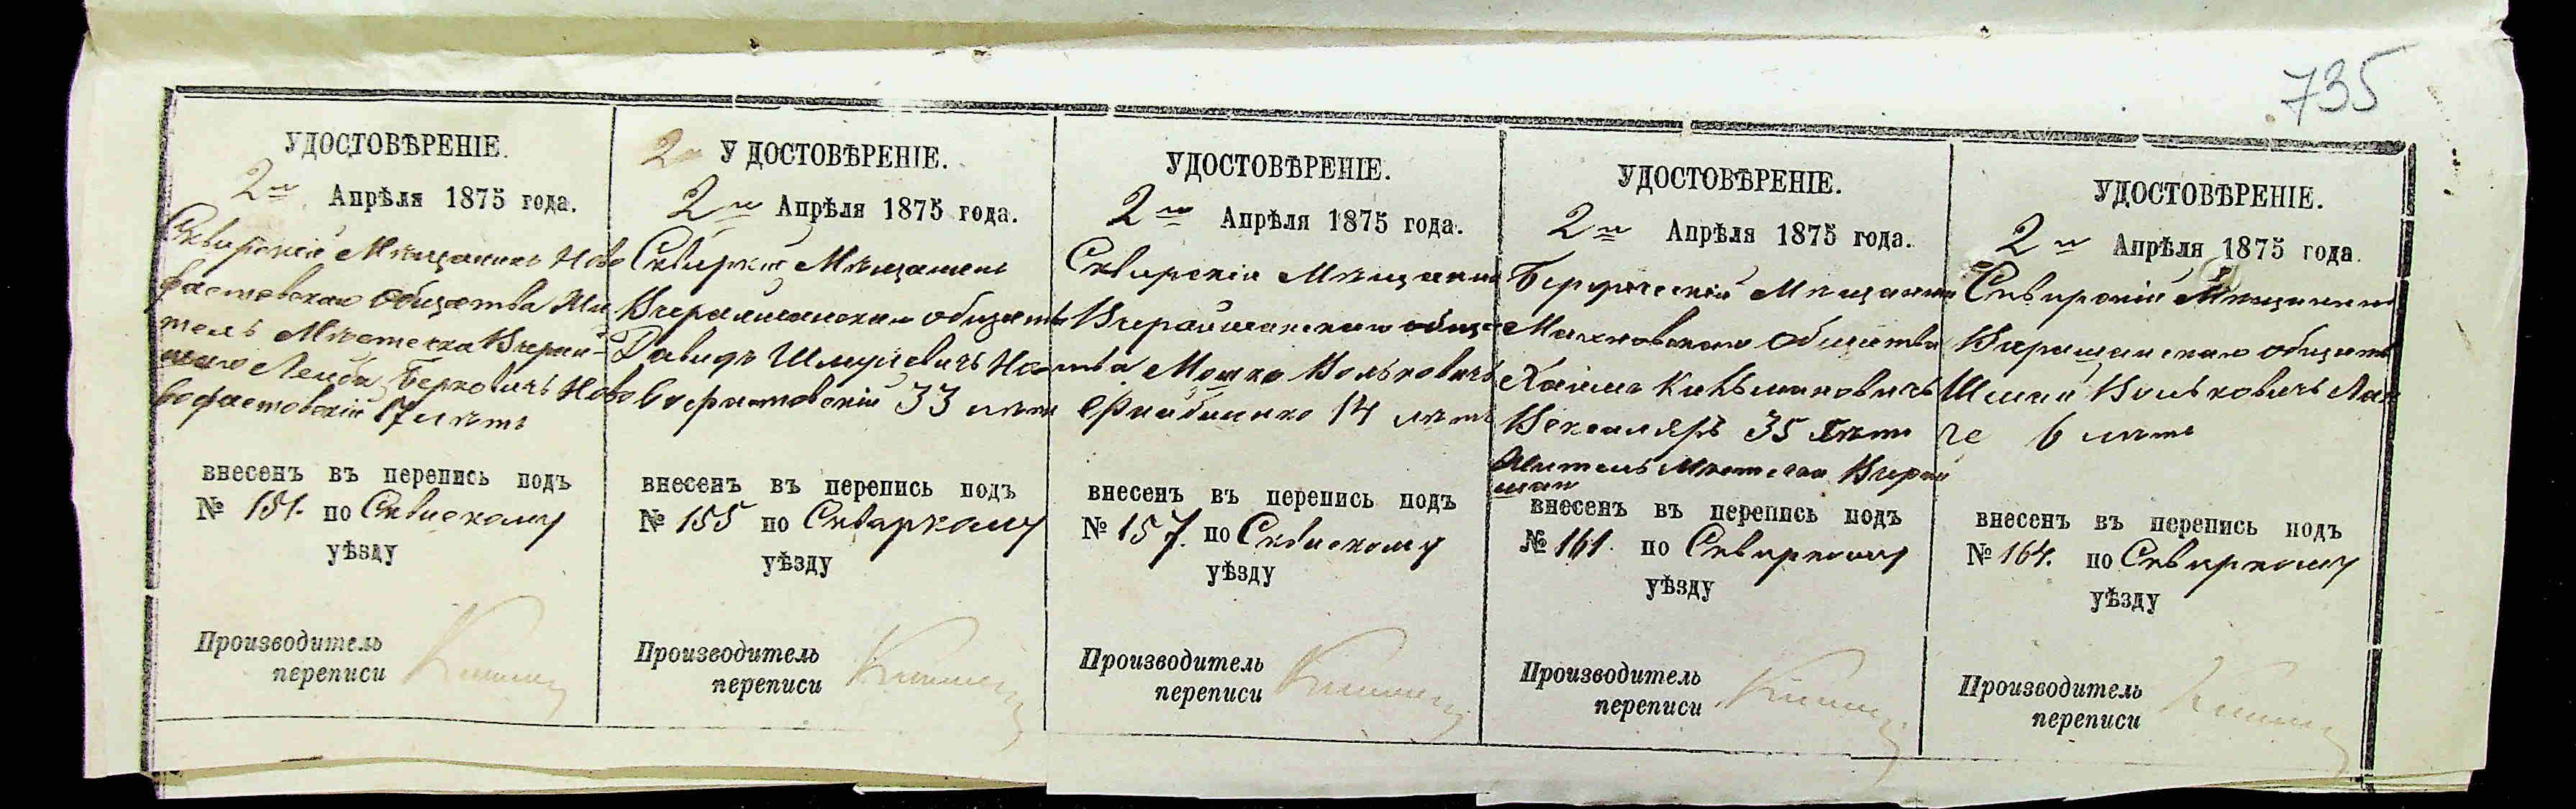 735
УДОСТОВѢРЕНІЕ.
2го Апрѣля 1875 года.
Сквирскій Мѣщанинъ Ново
фастовскаго общества Жи
тель Мѣстечка Вчерай-
шаго Лейба Берковичъ Ново
фастовскій 17 лѣтъ
внесенъ въ перепись подъ
№ 151. по Сквискому
уѣзду
Производитель
переписи
2 УДОСТОВѢРЕНІЕ.
2го Апрѣля 1875 года.
Сквирскій Мѣщанинъ
Вчерайшанскаго общества
Давидъ Шмулевичъ Но
вофастовскій 33 лѣтъ
внесенъ въ перепись подъ
№ 155 по Сквиркому
уѣзду
Производитель
переписи
УДОСТОВѢРЕНІЕ.
2го Апрѣля 1875 года.
Сквирскій Мѣщанинъ
Вчерайшанскаго общес
тва Мошко Вольковичъ
14 лѣтъ
внесенъ въ перепись подъ
№ 157. по Сквискому
уѣзду
Производитель
переписи
УДОСТОВѢРЕНІЕ.
2го Апрѣля 1875 года.
Бердичевскій Мѣщанинъ
Махновскаго Общества
Хаимъ
35 Лѣтъ
Житель Мѣстечка Вчерай
шан
внесенъ въ перепись подъ
№ 161. по Сквиркому
уѣзду
Производитель
переписи
УДОСТОВѢРЕНІЕ.
2го Апрѣля 1875 года.
Сквирскій Мѣщанинъ
Вчерашанскаго общест
Вольковичъ
6 лѣтъ
внесенъ въ перепись подъ
№ 164. по Сквиркому
уѣзду
Производитель
переписи